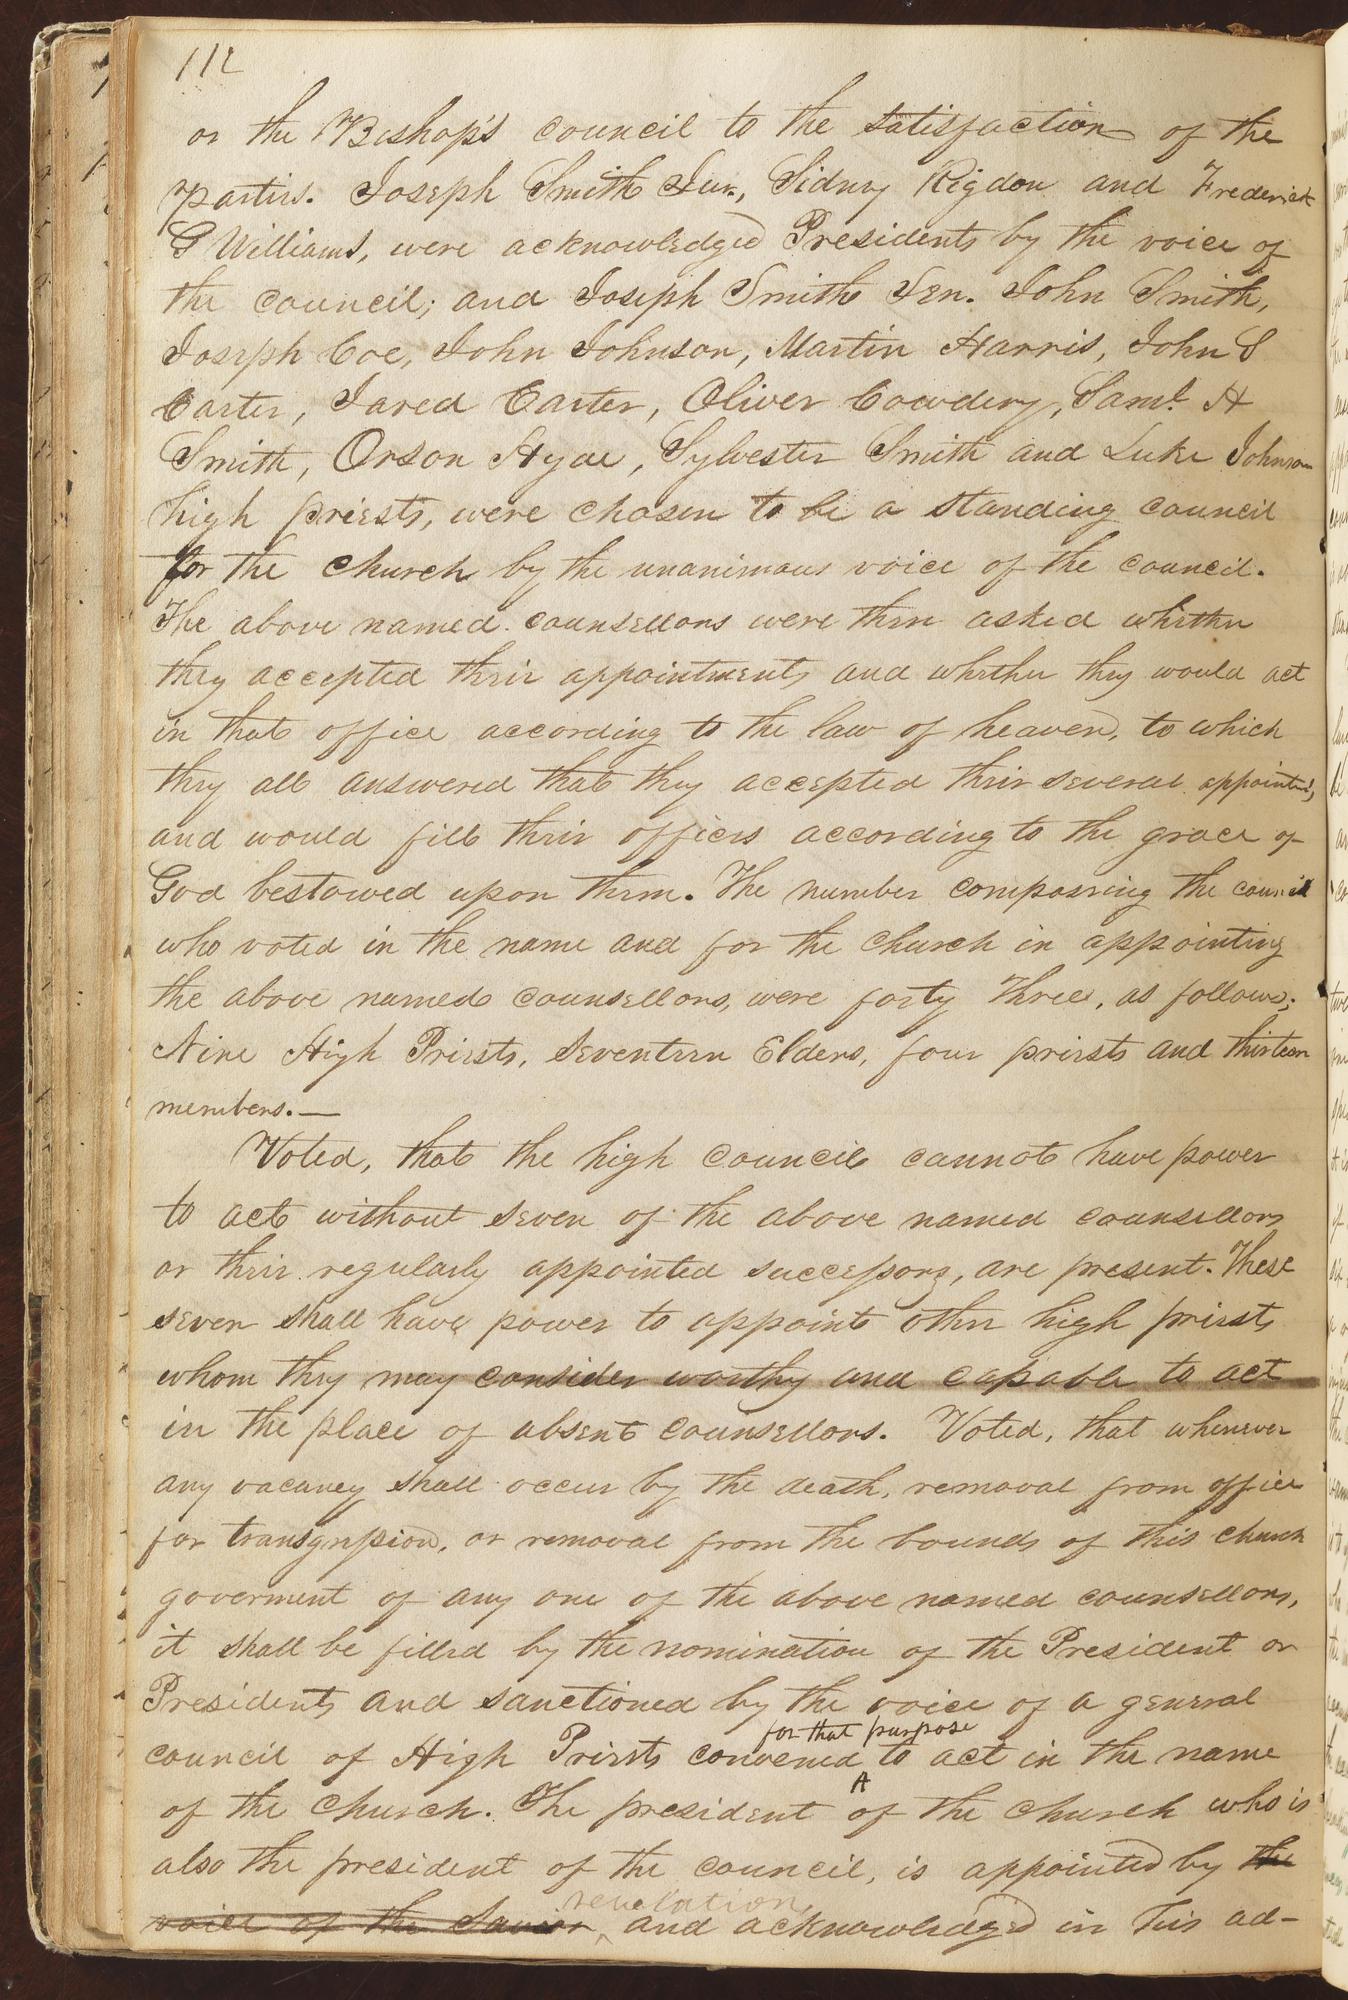 112
or the Bishop's council to the satisfaction of the
parties. Joseph Smith Jun., Sidney Rigdon and Frederick
G Williams, were acknowledged Presidents by the voice of
the council; and Joseph Smith Sen. John Smith,
Joseph Coe, John Johnson, Martin Harris, John S
Carter, Jared Carter, Oliver Cowdery, Saml. H
Smith, Orson Hyde, Sylvester Smith and Luke Johnson
high priests, were chosen to be a standing council
for the church by the unanimous voice of the council.
The above named counsellors were then asked whether
they accepted their appointments and whether they would act
in that office according to the law of heaven, to which
they all answered that they accepted their several appointm's,
and would fill their offices according to the grace of
God bestowed upon them. The number composing the council
who voted in the name and for the church in appointing
the above named counsellors, were forty three, as follows;
Nine High Priests, Seventeen Elders, four priests and thirteen
members.—
Voted, that the high council cannot have power
to act without seven of the above named counsellors
or their regularly appointed successors, are present. These
seven shall have power to appoint other high priests
whom they may consider worthy and capable to act
in the place of absent counsellors. Voted, that whenever
any vacancy shall occur by the death, removal from office
for transgression, or removal from the bounds of this church
goverment of any one of the above named counsellors,
it shall be filled by the nomination of the President or
Presidents and sanctioned by the voice of a general
for that purpose
council of High Priests convened to act in the name
of the church. The president of the church who is
also the president of the council, is appointed by the
revelation
voice of the Savior, and acknowledged in his ad-